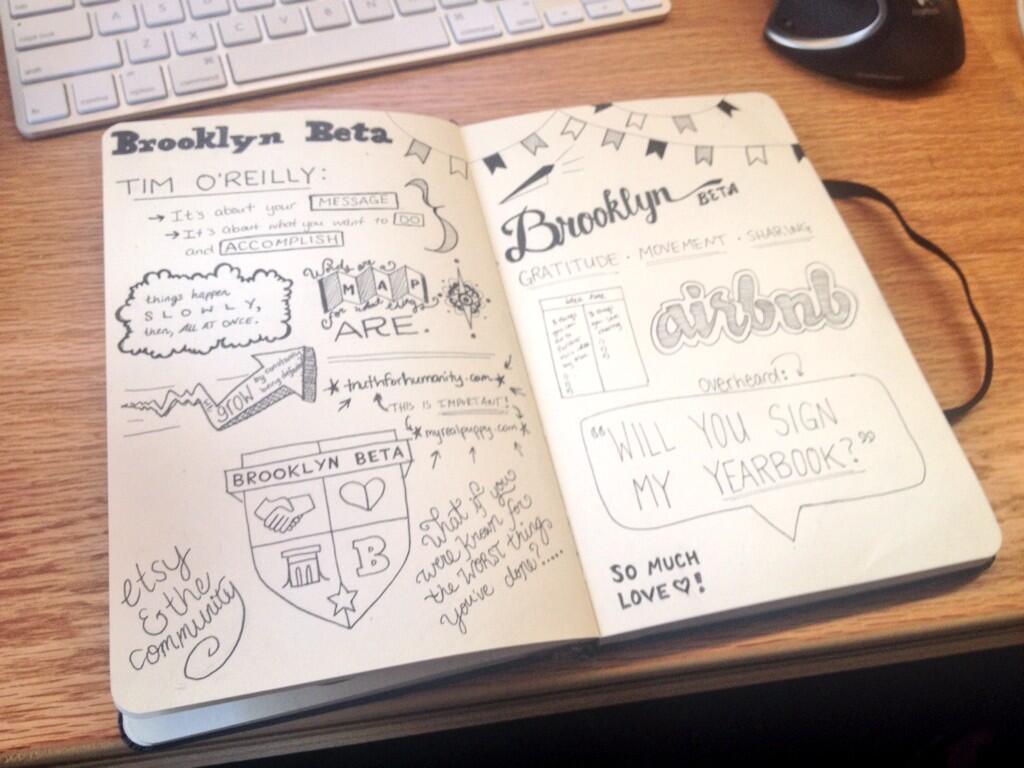 Brooklyn Beta
TIM O'REILLY:
→ It's about your MESSAGE
→ It's about what you want to DO
and ACCOMPLISH
things happen
SLOWLY,
then, ALL AT ONCE.
Words are a
MAP
for what things
ARE.
grow by constantly
being defeated
*truthforhumanity.com*
THIS IS IMPORTANT!
*myrealpuppy.com*
BROOKLYN BETA
B
etsy
& the
community
What if you
were known for
the WORST thing
you've done?.....
Brooklyn BETA
GRATITUDE · MOVEMENT · SHARING
airbnb
overheard:
"WILL YOU SIGN
MY YEARBOOK?"
SO MUCH
LOVE ♡!
Z X C V B N M
command
option
control
fn
shift
caps lock
A S D